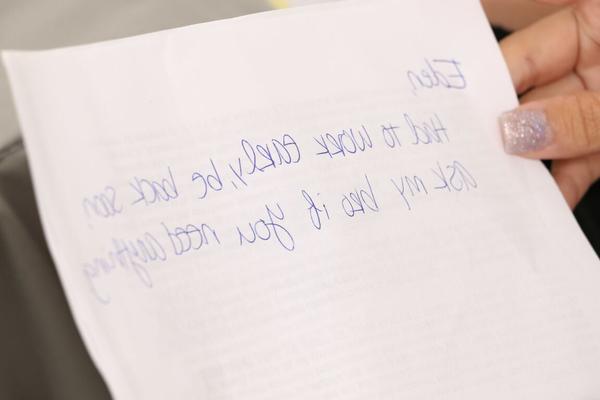 Eden,
Had to work early, be back son
ask my bro if you need anything